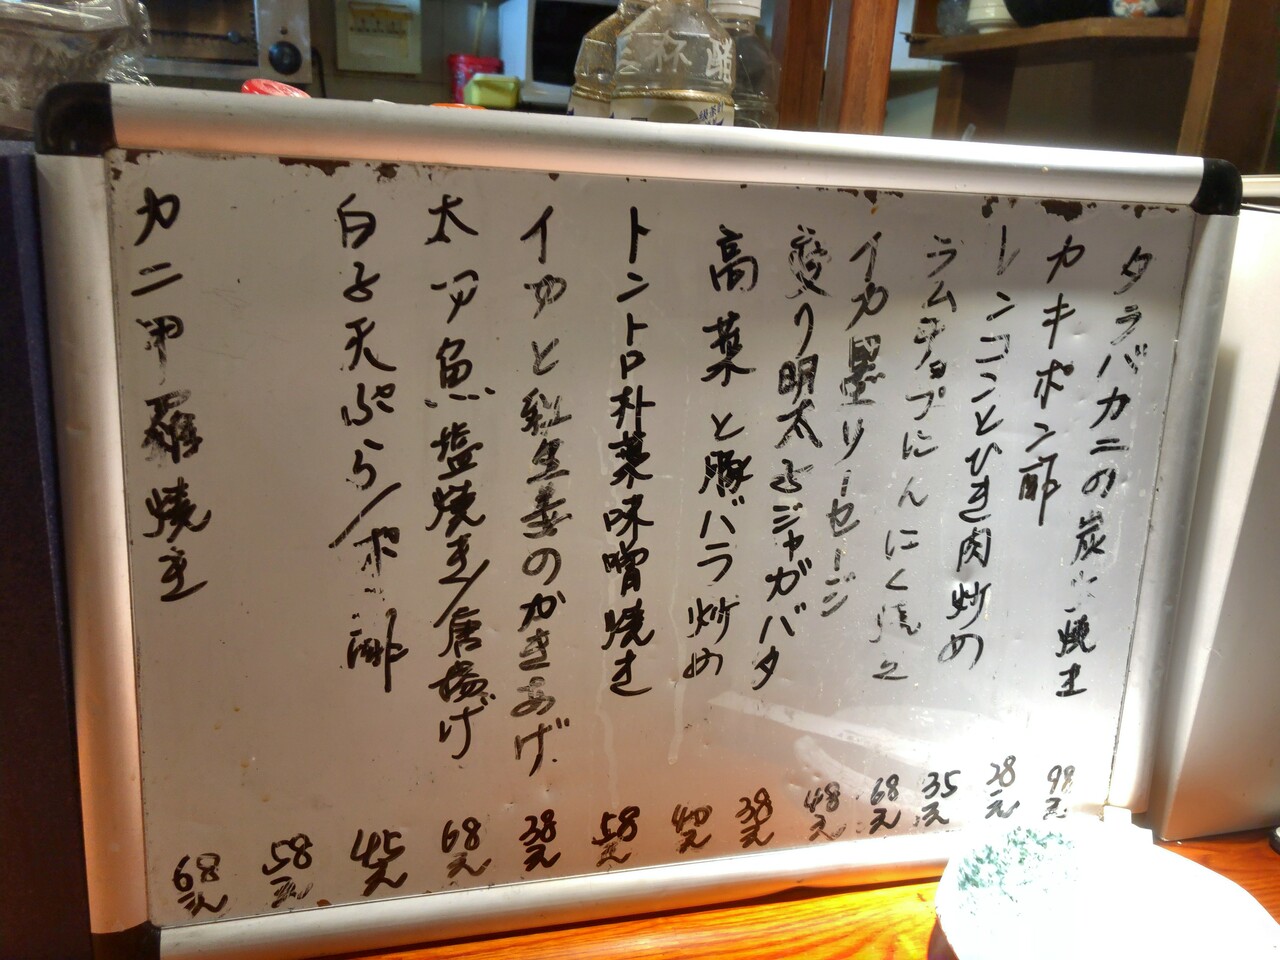 タラバカニの炭火焼き
カキポン酢
レンコンとひき肉炒め
ラムチョップにんにく焼き
イカ墨ソーセージ
炙り明太子ジャガバタ
高菜と豚バラ炒め
トントロ朴葉味噌焼き
イカと紅生姜のかきあげ
太刀魚塩焼き/唐揚げ
白子天ぷら/ポン酢
カニ甲羅焼き
98元
28元
35元
68元
48元
38元
40元
58元
38元
68元
45元
58元
68元
三杯醋